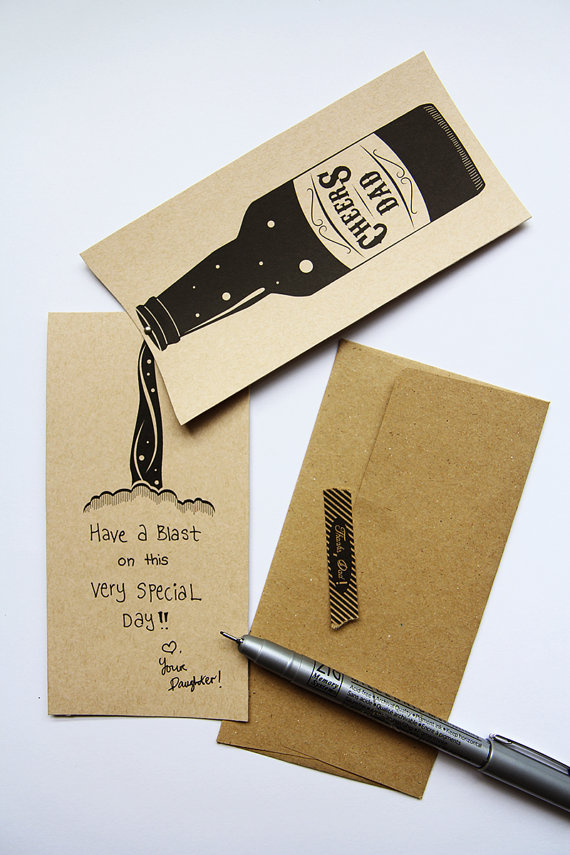 CHEERS
DAD
Have a Blast
on this
Very Special
Day!!
♡,
Your
Daughter!
Thanks, Dad!
ZIG
Memory